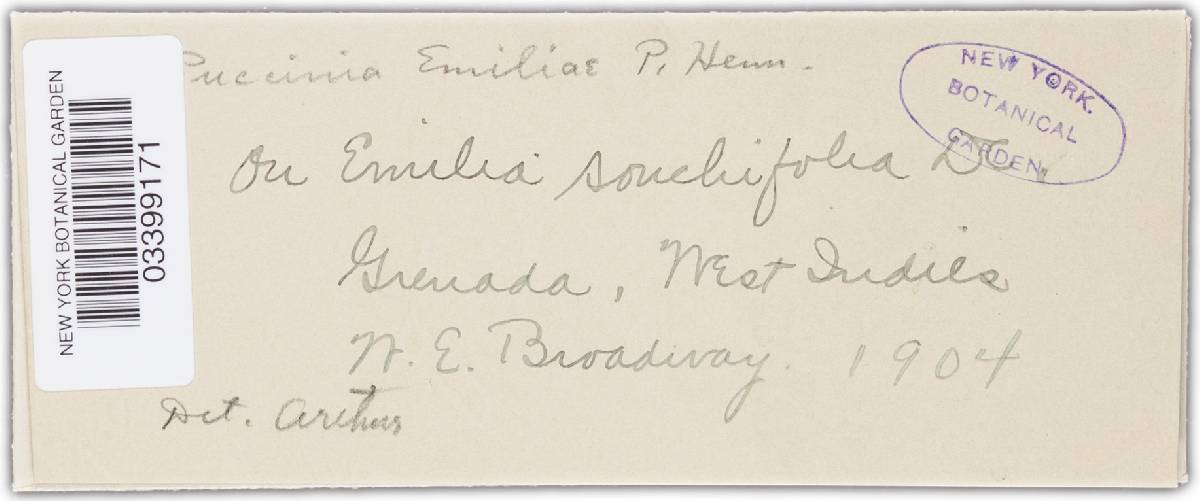 Puccinia Emiliae P. Henn.
On Emilia sonchifolia DC.
Grenada, West Indies
W. E. Broadway. 1904
Det. Arthur
NEW YORK
BOTANICAL
GARDEN
NEW YORK BOTANICAL GARDEN
03399171